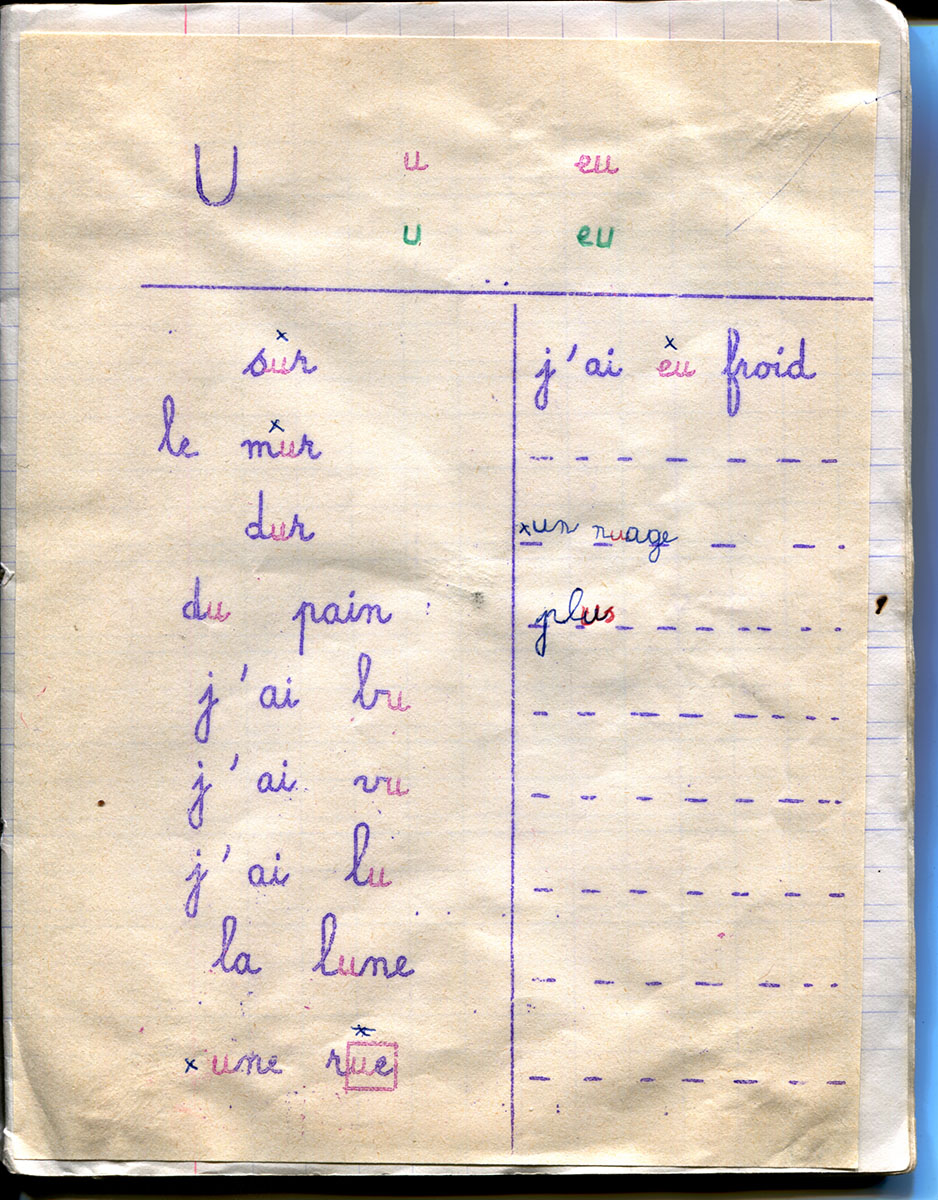 U u eu
u eu
sur
le mur
dur
du pain
j'ai bu
j'ai vu
j'ai lu
la lune
x une rue
j'ai eu froid
x un nuage
plus